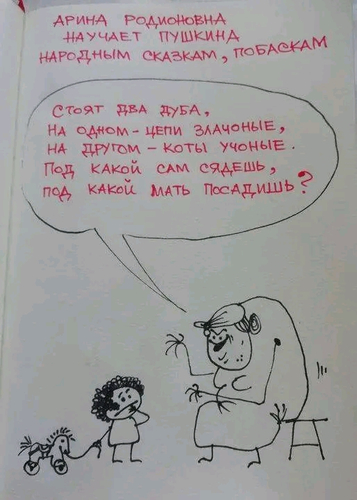 АРИНА РОДИОНОВНА
НАУЧАЕТ ПУШКИНА
НАРОДНЫМ СКАЗКАМ, ПОБАСКАМ
СТОЯТ ДВА ДУБА,
НА ОДНОМ - ЦЕПИ ЗЛАЧОНЫЕ,
НА ДРУГОМ - КОТЫ УЧОНЫЕ.
ПОД КАКОЙ САМ СЯДЕШЬ,
ПОД КАКОЙ МАТЬ ПОСАДИШЬ?